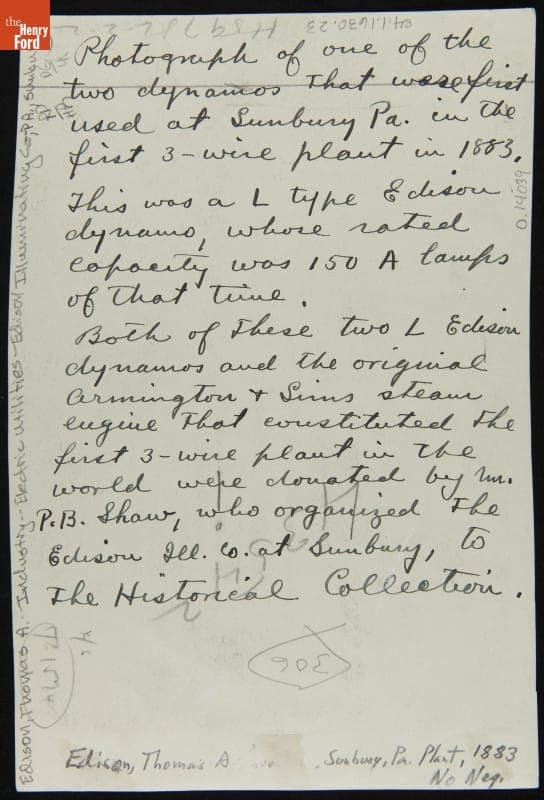 the
Henry
Ford
64.1.1630.23
Photograph of one of the
two dynamos that were first
used at Sunbury Pa. in the
first 3-wire plant in 1883.
This was a L type Edison
dynamo, whose rated
capacity was 150 A lamps
of that time.
Both of these two L Edison
dynamos and the original
Armington & Sims steam
engine that constituted the
first 3-wire plant in the
world were donated by Mr.
P.B. Shaw, who organized the
Edison Ill. Co. at Sunbury, to
the Historical Collection.
306
Edison, Thomas A. Sunbury, Pa. Plant, 1883
No Neg.
Edison, Thomas A. - Industry -- Electric Utilities - Edison Illuminating Co., PA, Sunbury
0.14039